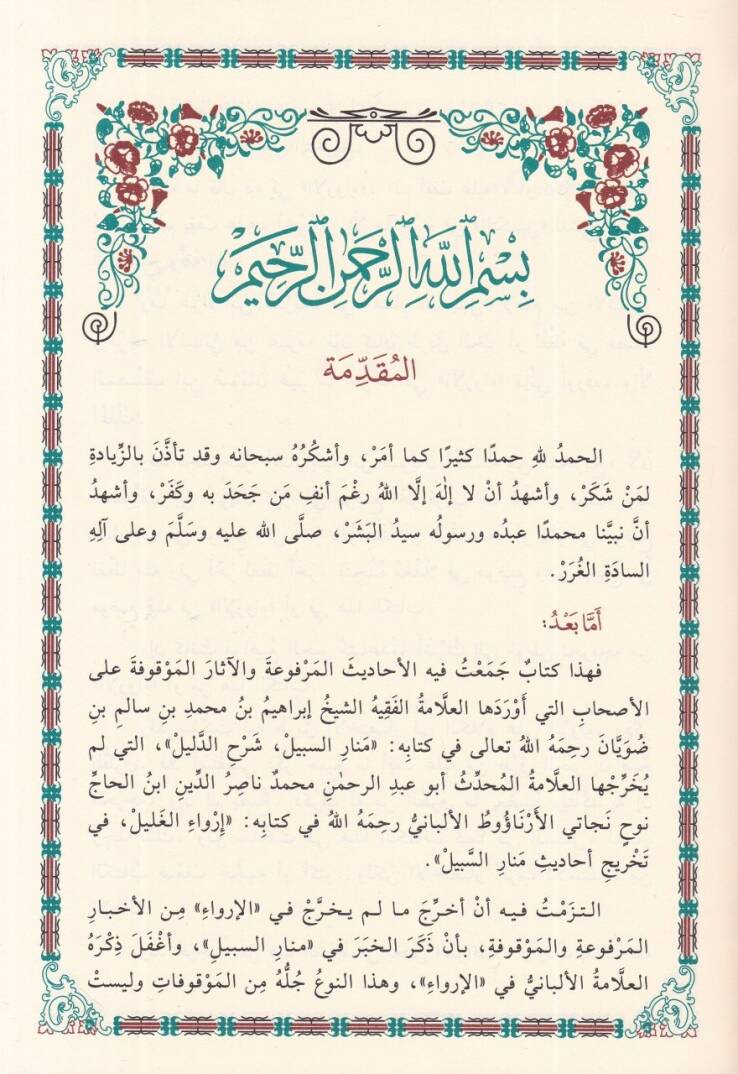 بِسْمِ ٱللَّهِ ٱلرَّحْمَٰنِ ٱلرَّحِيمِ
المُقَدِّمَة
الحمدُ للهِ حمدًا كثيرًا كما أمَرْ، وأشكُرُهُ سبحانه وقد تأذَّنَ بالزِّيادةِ
لمَنْ شَكَرْ، وأشهدُ أنْ لا إلٰهَ إلَّا اللهُ رغْمَ أنفِ مَن جَحَدَ به وكَفَرْ، وأشهدُ
أنَّ نبيَّنا محمدًا عبدُه ورسولُه سيدُ البَشَرْ، صلَّى الله عليه وسَلَّمَ وعلى آلِهِ
السادَةِ الغُرَرْ.
أمَّا بَعْدُ:
فهذا كتابٌ جَمَعْتُ فيه الأحاديثَ المَرْفوعةَ والآثارَ المَوْقوفةَ على
الأصحابِ التي أَوْرَدَها العلَّامةُ الفَقِيهُ الشيخُ إبراهيمُ بنُ محمدِ بنِ سالمِ بنِ
ضُوَيَّانَ رحِمَهُ اللهُ تعالى في كتابِه: «مَنارِ السبيلْ، شَرْحِ الدَّليلْ»، التي لم
يُخَرِّجْها العلَّامةُ المُحدِّثُ أبو عبدِ الرحمٰنِ محمدٌ ناصِرُ الدِّينِ ابنُ الحاجِّ
نوحِ نَجاتي الأَرْنَاؤُوطُ الألبانيُّ رحِمَهُ اللهُ في كتابِه: «إرْواءِ الغَليلْ، في
تَخْريجِ أحاديثِ مَنارِ السَّبيلْ».
التزَمْتُ فيه أنْ أخرِّجَ ما لم يخرَّجْ في «الإرواءِ» مِن الأخبارِ
المَرْفوعةِ والمَوْقوفةِ، بأنْ ذَكَرَ الخبَرَ في «منارِ السبيلِ»، وأغْفَلَ ذِكْرَهُ
العلامةُ الألبانيُّ في «الإرواءِ»، وهذا النوعُ جُلُّه مِن المَوْقوفاتِ وليستْ